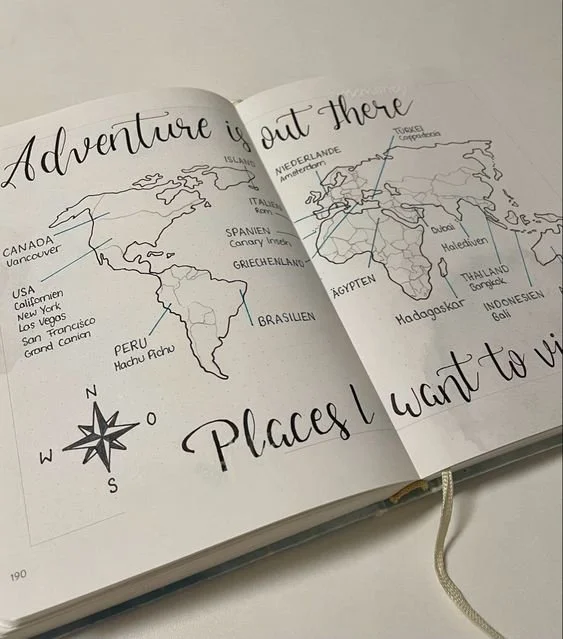 Adventure is out there
ISLAND
ITALIEN
Rom
SPANIEN
Canary Inseln
GRIECHENLAND
CANADA
Vancouver
USA
Californien
New York
Las Vegas
San Francisco
Grand Canian
PERU
Machu Pichu
BRASILIEN
NIEDERLANDE
Amsterdam
TÜRKEI
Cappadocia
Dubai
Malediven
ÄGYPTEN
Madagaskar
THAILAND
Bangkok
INDONESIEN
Bali
N
O
W
S
Places I want to vi
190